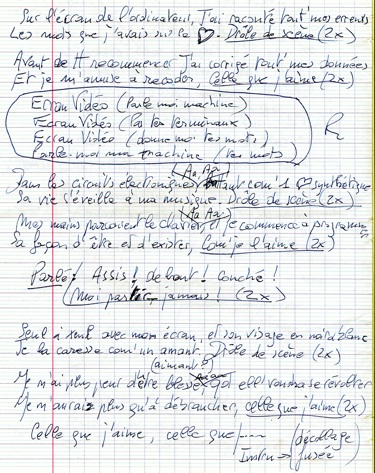 Sur l'écran de l'ordinateur, J'ai raconté tout' mes erreurs
Les mots que j'avais sur le ♡. Drôle de scène (2x)
Avant de tt recommencer J'ai corrigé tout' mes données
Et je m'amuse à recoder, Celle que j'aime (2x)
Ecran Vidéo (Parle moi machine)
Ecran Vidéo (Par tes terminaux)
Ecran Vidéo (donne moi tes mots)
Parle-moi ma machine (tes mots)
R
(Aa, Aa)
Dans les circuits électroniques, battant com' 1 ♡ synthétique
Sa vie s'éveille à ma musique. Drôle de scène (2x)
(Aa, Aa)
Mes mains parcourent le clavier, et je commence à programmer
Sa façon d'être et d'exister, Com' je l'aime (2x)
Parlé: Assis! debout! couché!
(Moi partir jamais! (2x)
Seul à seul avec mon écran, et son visage en noir & blanc
Je la caresse com' un amant. Drôle de scène (2x)
(aimant?)
Je n'ai plus peur d'être blessé, qd ell' voudra se révolter
Je n'aurais plus qu'à débrancher, celle que j'aime (2x)
Celle que j'aime, celle que/.....
Instru → (décollage
fusée)